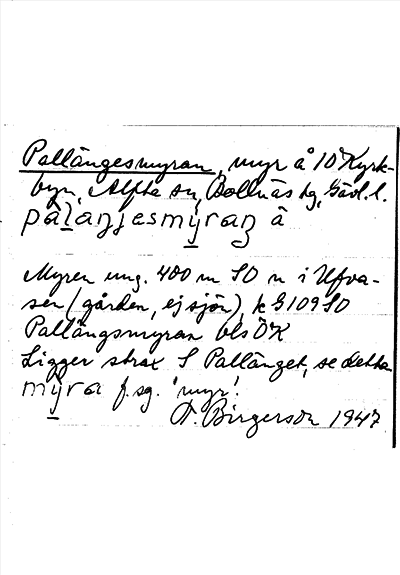 Pallängesmyran, myr å 10 Kyrk-
byn, Alfta sn, Bollnäs tg, Gävl. l.
palaŋjesmyraŋ å
Myren ung. 400 m SO n i Ulva-
sen (gården, ej sjön), k G109 SO
Pallängsmyran bls ÖK
Ligger strax S Pallänget, se detta
myra f. sg. 'myr'.
Birgerson 1947